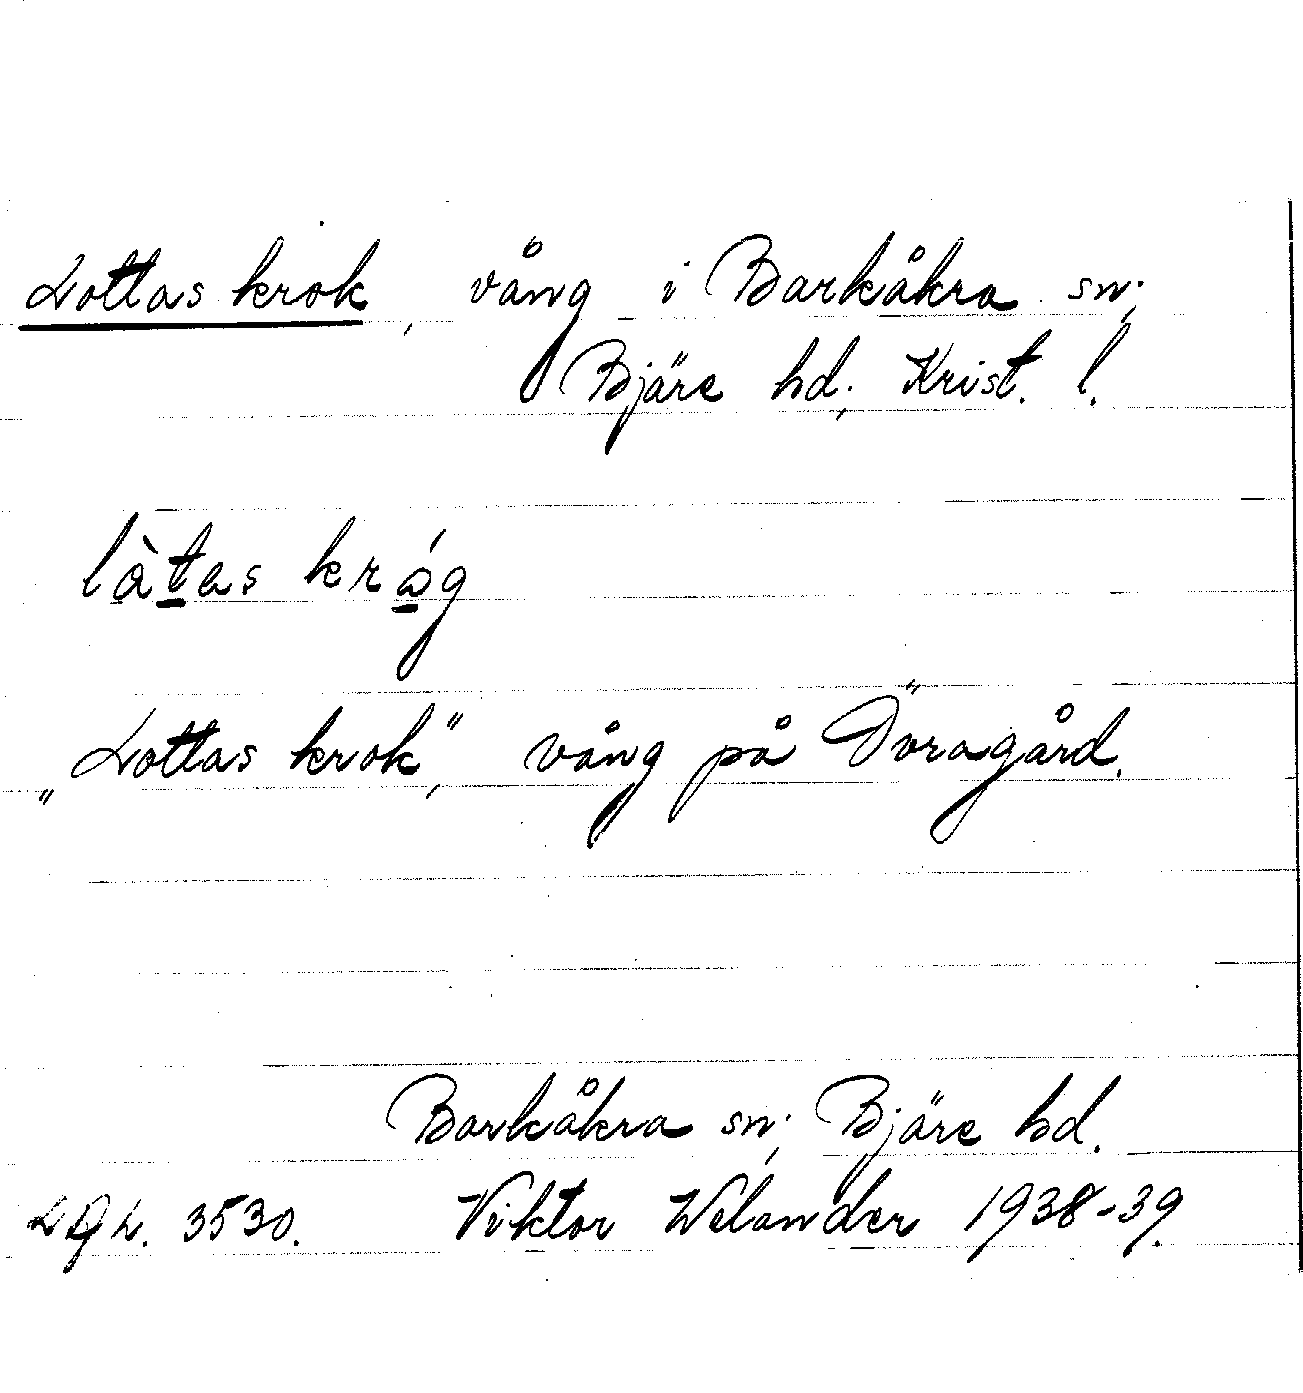 Lottas krok, vång i Barkåkra sn;
Bjäre hd; Krist. l.
làtas króg
„Lottas krok”, vång på Döragård.
Barkåkra sn; Bjäre hd.
3530. Viktor Welander 1938-39.